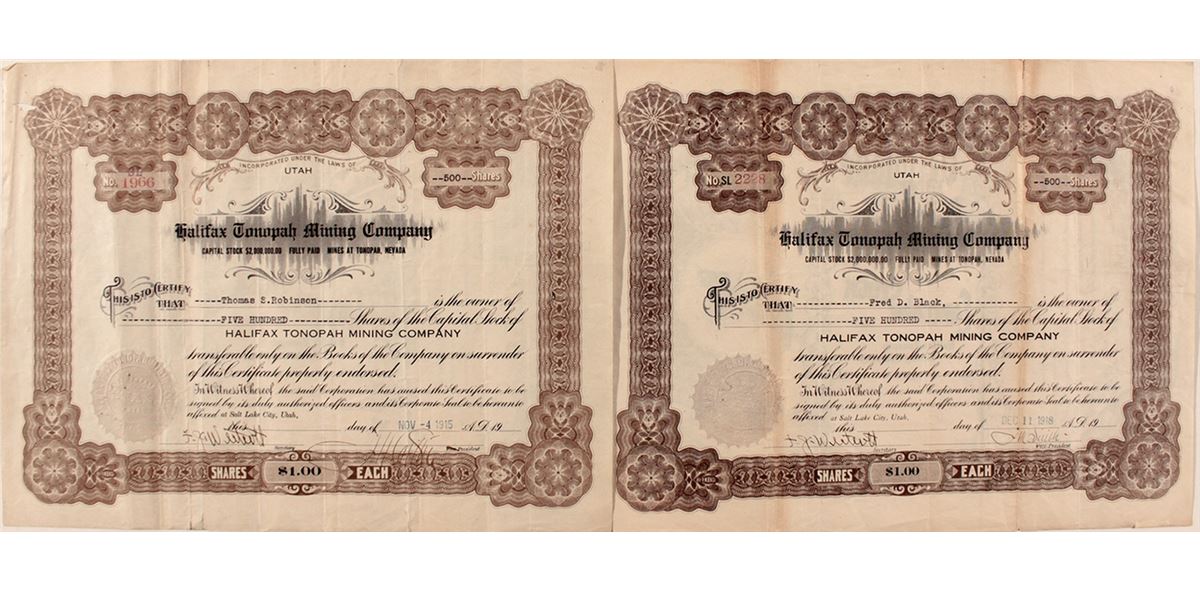 INCORPORATED UNDER THE LAWS OF
UTAH
SL
No. 1966
--500-- Shares
Halifax Tonopah Mining Company
CAPITAL STOCK $2,000,000.00 FULLY PAID MINES AT TONOPAH, NEVADA
THIS IS TO CERTIFY THAT ----Thomas S.Robinson-------- is the owner of
FIVE HUNDRED Shares of the Capital Stock of
HALIFAX TONOPAH MINING COMPANY
transferable only on the Books of the Company on surrender
of this Certificate properly endorsed.
In Witness Whereof, the said Corporation has caused this Certificate to be
signed by its duly authorized officers and its Corporate Seal to be hereunto
affixed at Salt Lake City, Utah,
this day of NOV -4 1915 A.D. 19
Secretary President
SHARES $1.00 EACH
INCORPORATED UNDER THE LAWS OF
UTAH
No SL
--500-- Shares
Halifax Tonopah Mining Company
CAPITAL STOCK $2,000,000.00 FULLY PAID MINES AT TONOPAH, NEVADA
THIS IS TO CERTIFY THAT Fred D. Black, is the owner of
FIVE HUNDRED Shares of the Capital Stock of
HALIFAX TONOPAH MINING COMPANY
transferable only on the Books of the Company on surrender
of this Certificate properly endorsed.
In Witness Whereof, the said Corporation has caused this Certificate to be
signed by its duly authorized officers and its Corporate Seal to be hereunto
affixed at Salt Lake City, Utah,
this day of DEC 11 1918 A.D. 19
Secretary Vice-President
SHARES $1.00 EACH